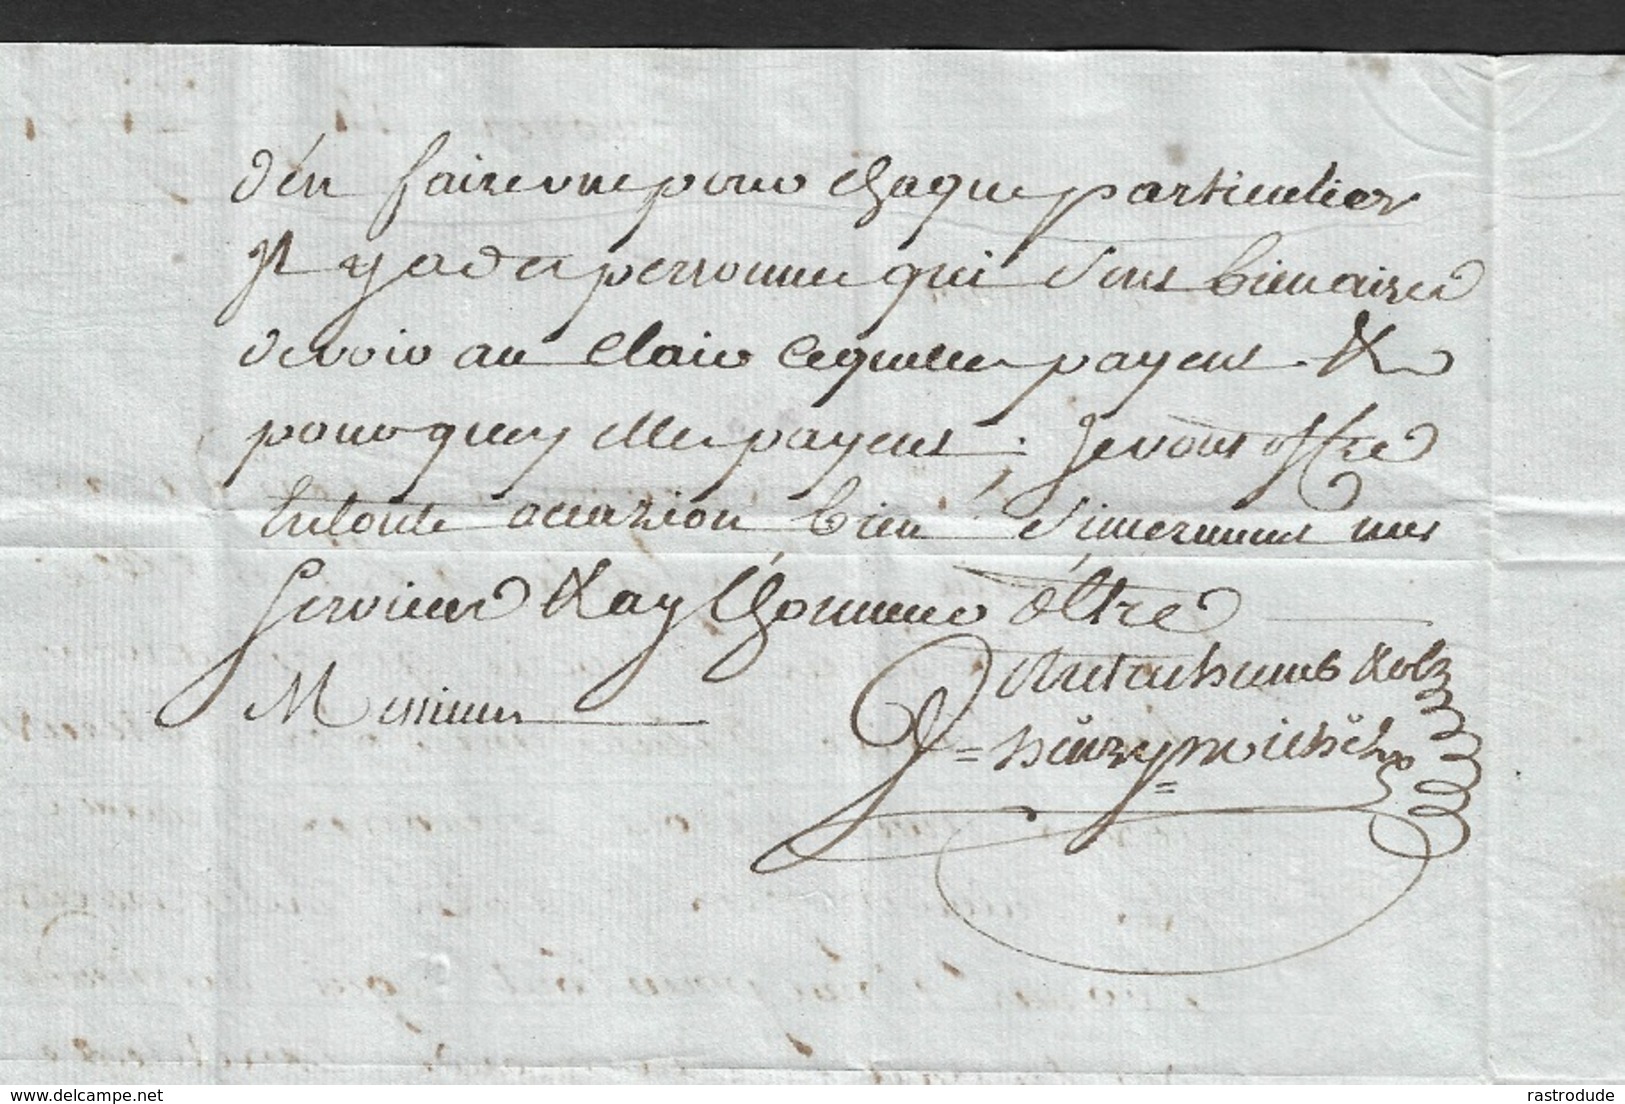 d'én faire une pour chaque particulier
Il y a des personnes qui sont bien aises
de voir au clair ce quelles payent &
pourquoy elles payent; Je vous offre
En toute occazion bien sincerement mes
Services & ay Lhonneur déltre
Messieurs
henry
www.delcampe.net
rastrodude